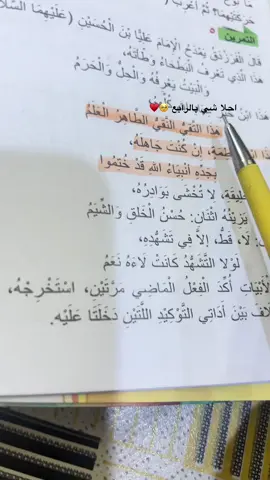 حركتيهما؟ ثم أعرب
التمرين ٥
قال الفرزدق يمدح الإمام علي بن الحسين (عليهما السلا
هذا الذي تعرف البطحاء وطأته،
والبيت يعرفه والحل والحرم
هذا ابن
احلا شيي بالرابع🥺❤️
هذا التقي النقي الطاهر العلم
فاطمة، إن كنت جاهله،
بجده أنبياء الله قد ختموا
الخليقة، لا تخشى بوادره،
يزينه اثنان: حسن الخلق والشيم
لا، قط، إلا في تشهده،
لولا التشهد كانت لاءه نعم
الأبيات أكد الفعل الماضي مرتين، استخرجه،
لاف بين أداتي التوكيد اللتين دخلتا عليه.